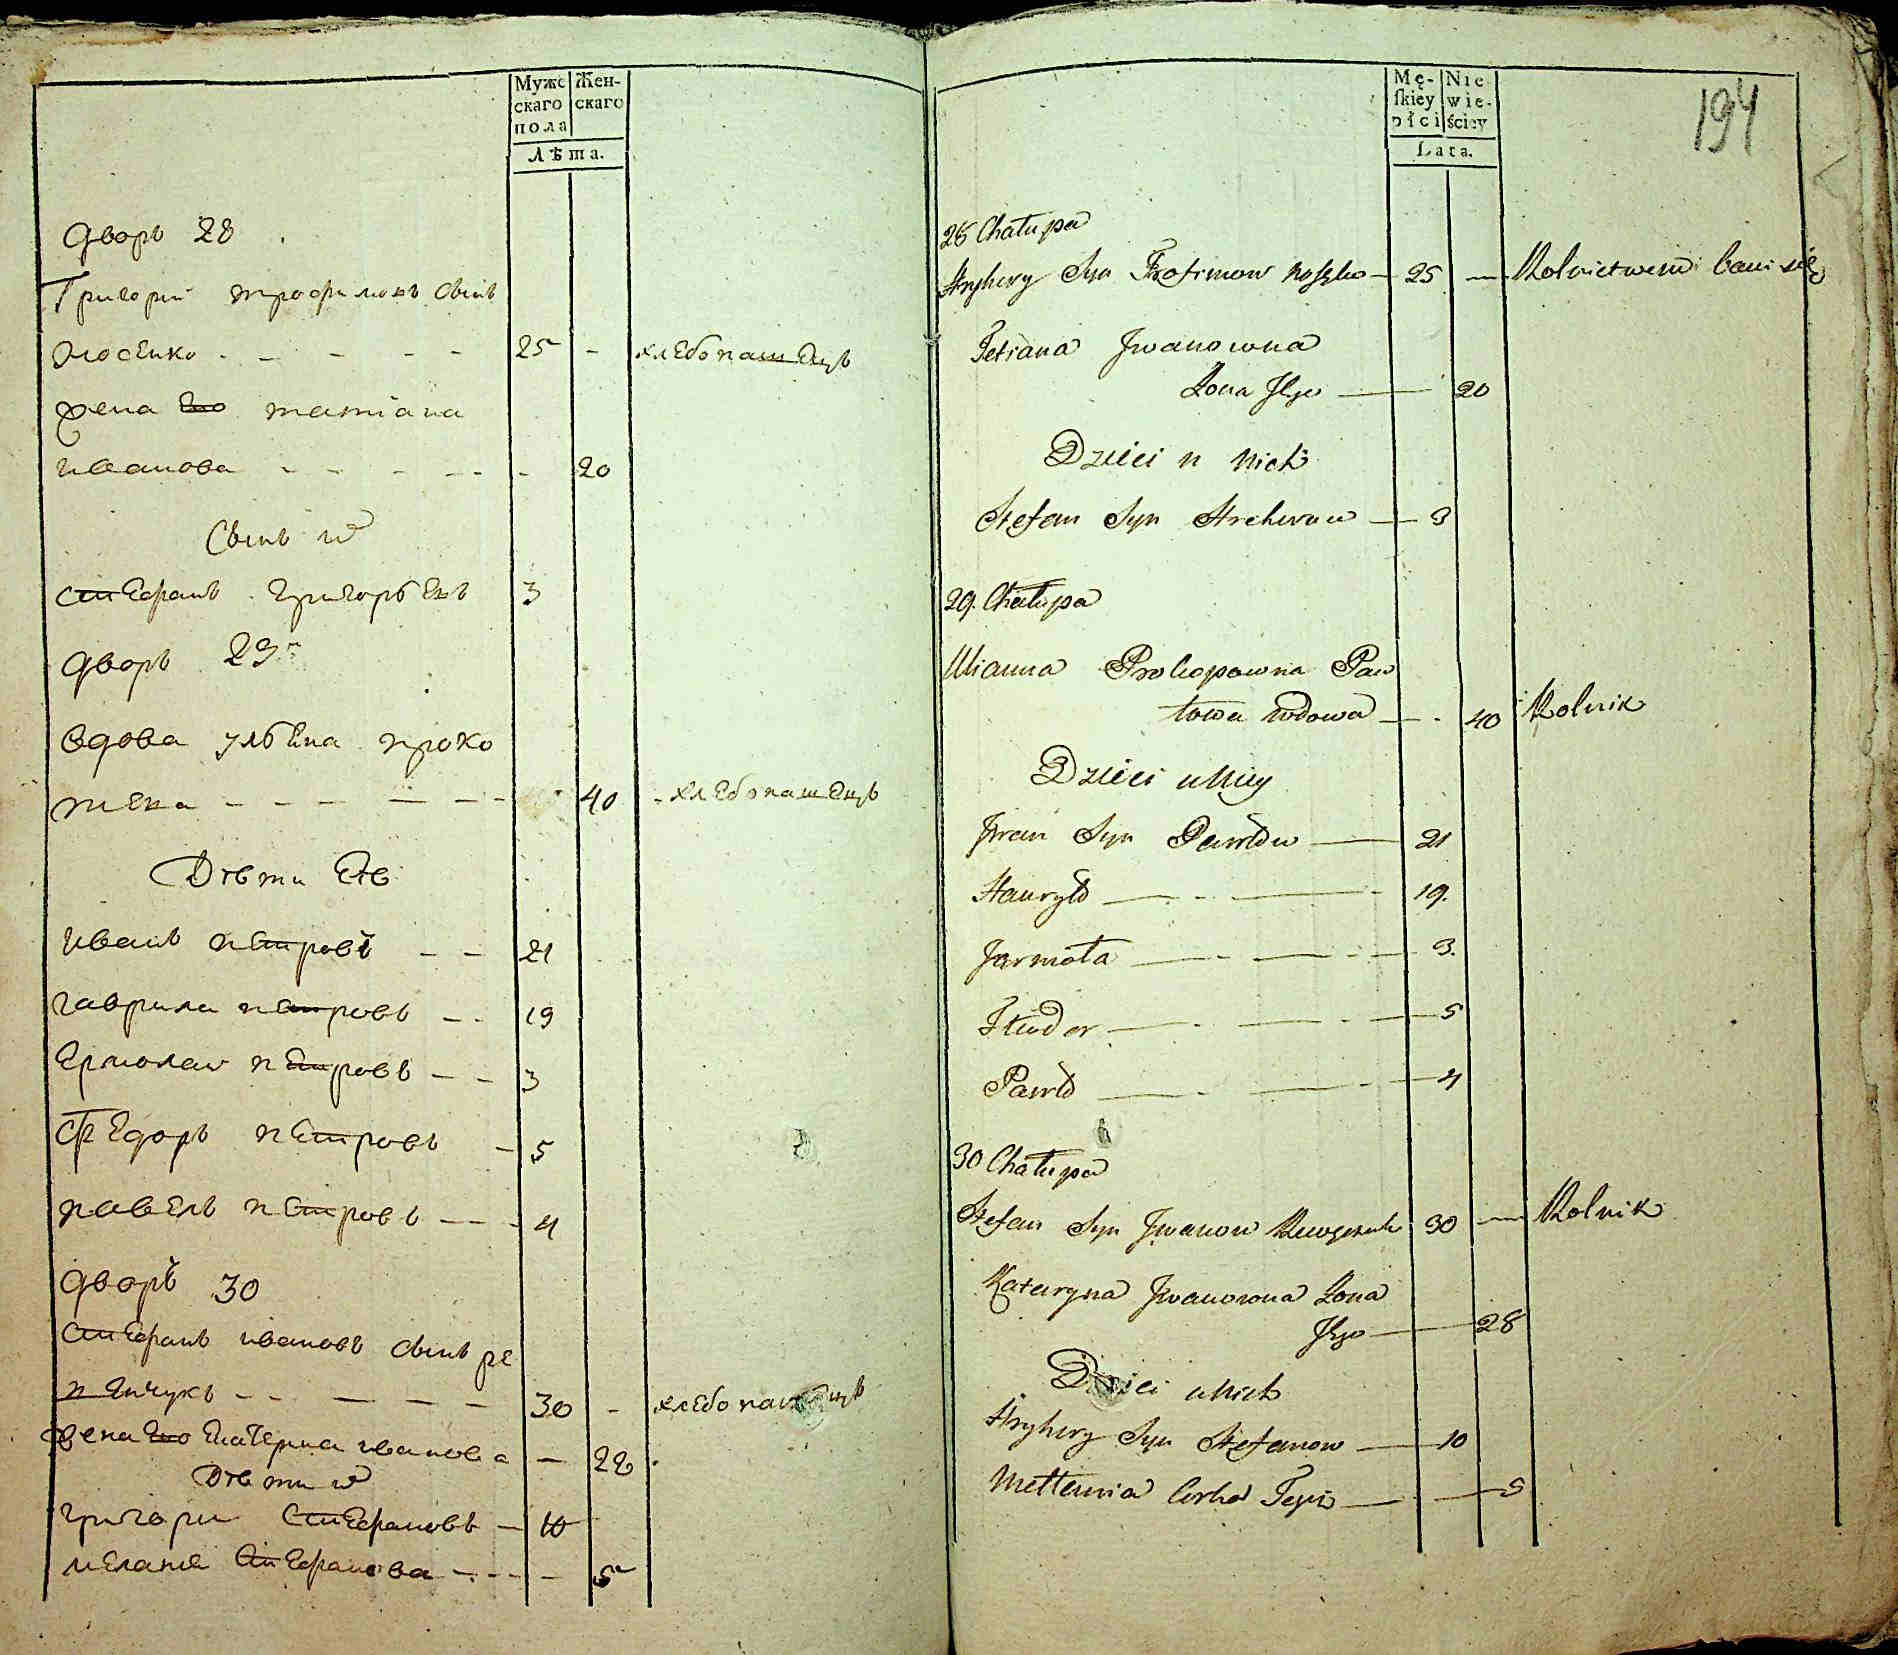 Мужс Жен-
скаго скаго
пола
Лѣта.
дворъ 28
Григорий трофимовъ сынъ
носенко - - - - - 25 - хлебопашецъ
жена его татиана
иванова - - - - - - 20
сынъ их
стефанъ григорьевъ 3
дворъ 29
вдова ульяна проко
пена - - - - - - 40 - хлебопашецъ
Дѣти Еѣ
иванъ петровъ - - 21
гаврила петровъ - - 19
Ермолаи петровъ - - 3
Федоръ петровъ - 5
павелъ петровъ - - - 4
дворъ 30
стефанъ ивановъ сынъ ре
пенчукъ - - - - - 30 - хлебопашецъ
жена его Екатерина иванова - 28
Дѣти их
григори Стефановъ - 10
мелания Стефанова - - - - 5
Mę- Nie
skiey wie-
płci ściey
Lata.
194
28 Chałupa
Hryhory Syn Trofimow - 25 - Rolnictwem bawi się
Tetiana Jwanowna
Żona Jego - 20
Dzieci u nich
Stefan Syn - 3
29. Chałupa
Ulianna Prokopowna Paw
łowa wdowa - - 40 Rolnik
Dzieci u niey
Jwan Syn Pawłow - 21
Hauryło - - - 19.
Jarmoła - - - - 3.
Fiedor - - - - 5
Pawło - - - - 4
30 Chałupa
Stefan Syn Jwanow 30 - Rolnik
Kateryna Jwanowna Żona
Jego - 28
Dzieci u nich
Hryhory Syn Stefanow - 10
Mellania Corka Tegoż - - 5